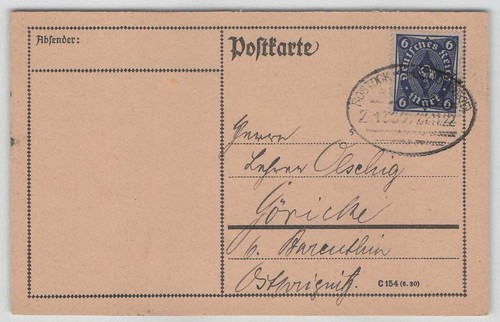 Absender:
Postkarte
6 Deutsches Reich 6
6 Mark 6
ROSTOCK
Herrn
Lehrer Oelschig
Göricke
b. Barenthin
Ostprignitz.
C 154 (8. 20)